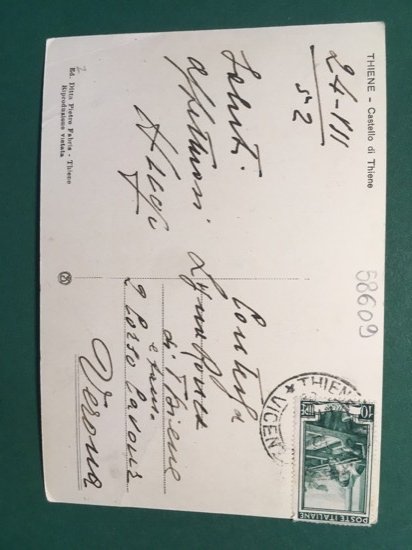 THIENE - Castello di Thiene
24-VII
52
Saluti
affettuosi
Ed. Ditta Pietro Fabris - Thiene
Riproduzione vietata
58609
Contessa
di Thiene
e fam.
2 Corso Cavour
Verona
THIENE
VICENZA
10
POSTE ITALIANE